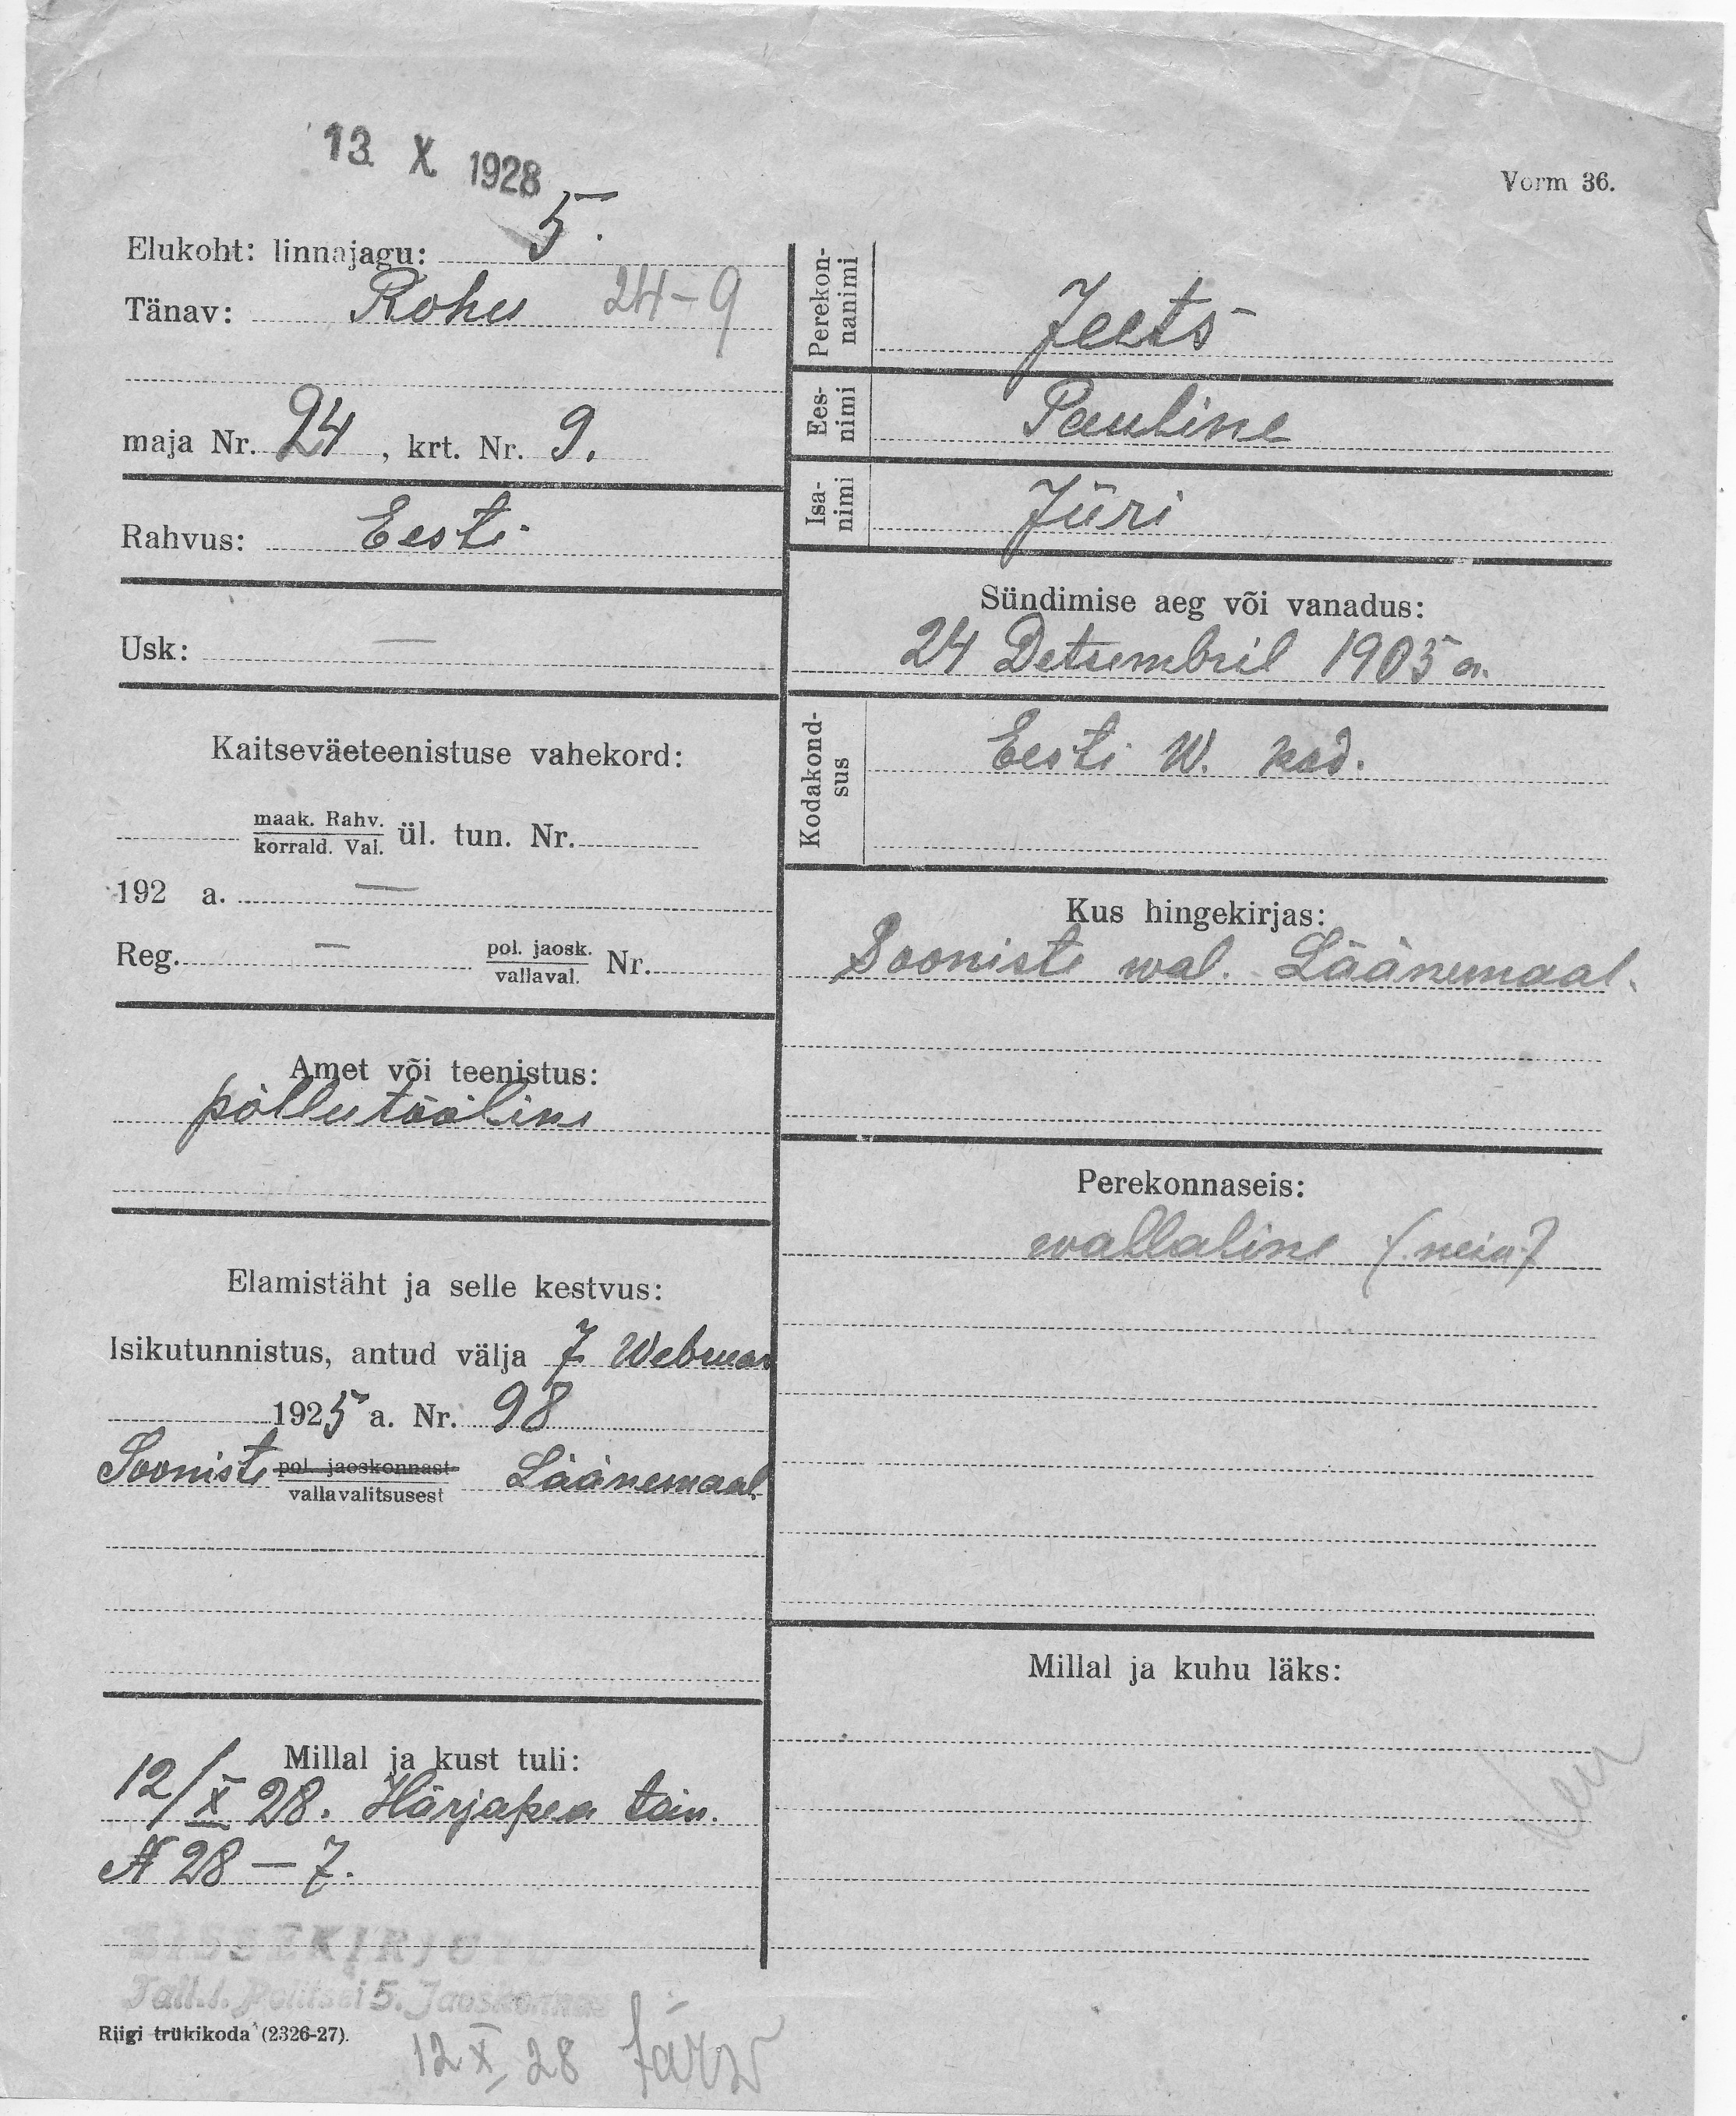 13. X. 1928
Vorm 36.
Elukoht: linnajagu: 5.
Tänav: Rohu 24-9
maja Nr. 24, krt. Nr. 9.
Rahvus: Eesti
Usk: —
Kaitseväeteenistuse vahekord:
maak. Rahv.
korrald. Val. ül. tun. Nr.
192 a. —
Reg. — pol. jaosk.
vallaval. Nr.
Amet või teenistus:
põllutööline
Elamistäht ja selle kestvus:
Isikutunnistus, antud välja 7 Webruar
1925 a. Nr. 98
Sooniste pol. jaoskonnast Läänemaal.
vallavalitsusest
Millal ja kust tuli:
12/X 28. Härjapea tän.
N 28 — 7.
SISSEKIRJUT
Tall.l. Politsei 5. Jaoskonnas
Riigi trükikoda (2326-27).
12 X 28
Perekon-
nanimi
Jeets
Ees-
nimi
Pauline
Isa-
nimi
Jüri
Sündimise aeg või vanadus:
24 Detsembril 1905 a.
Kodakond-
sus
Eesti W. kod.
Kus hingekirjas:
Sooniste wal. Läänemaal.
Perekonnaseis:
wallaline (neiu)
Millal ja kuhu läks: